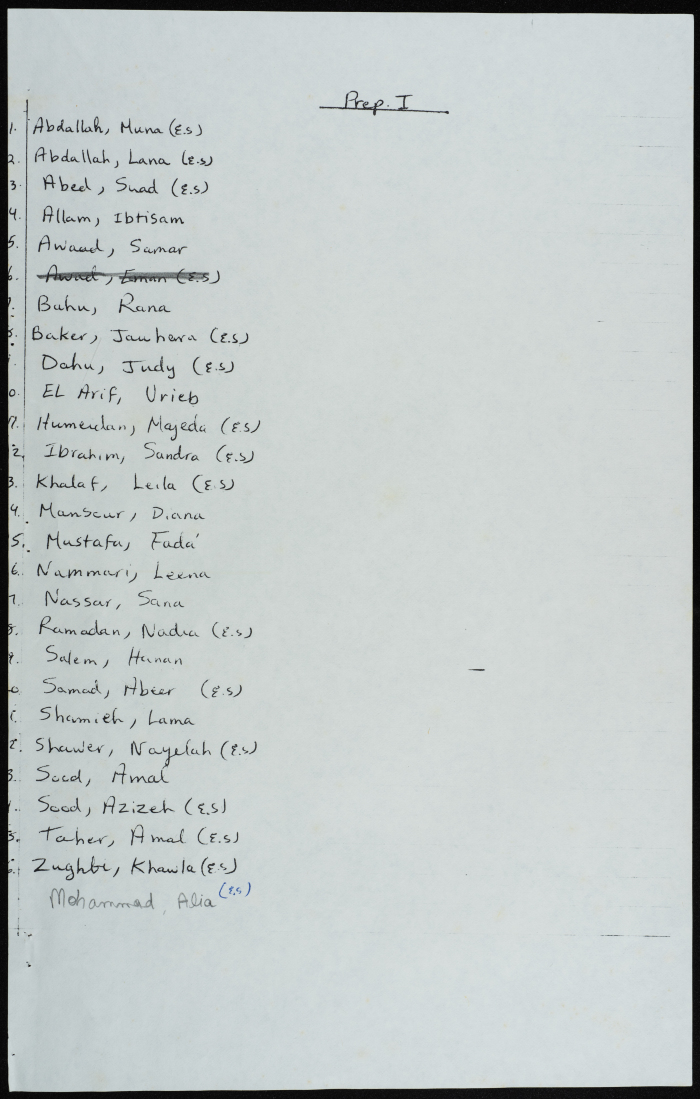 Prep. I
1. Abdallah, Muna (E.S)
2. Abdallah, Lana (E.S)
3. Abed, Suad (E.S)
4. Allam, Ibtisam
5. Awaad, Samar
6. Awad, Eman (E.S)
7. Bahu, Rana
8. Baker, Jauhara (E.S)
Dahu, Judy (E.S)
0. EL Arif, Urieb
Humeidan, Majeda (E.S)
2. Ibrahim, Sandra (E.S)
3. Khalaf, Leila (E.S)
4. Mansour, Diana
5. Mustafa, Fada'
6. Nammari, Leena
7. Nassar, Sana
8. Ramadan, Nadia (E.S)
9. Salem, Hanan
0. Samad, Abeer (E.S)
1. Shamieh, Lama
2. Shawer, Nayelah (E.S)
3. Sood, Amal
4. Sood, Azizeh (E.S)
5. Taher, Amal (E.S)
6. Zughbi, Khawla (E.S)
Mohammad, Alia (E.S)